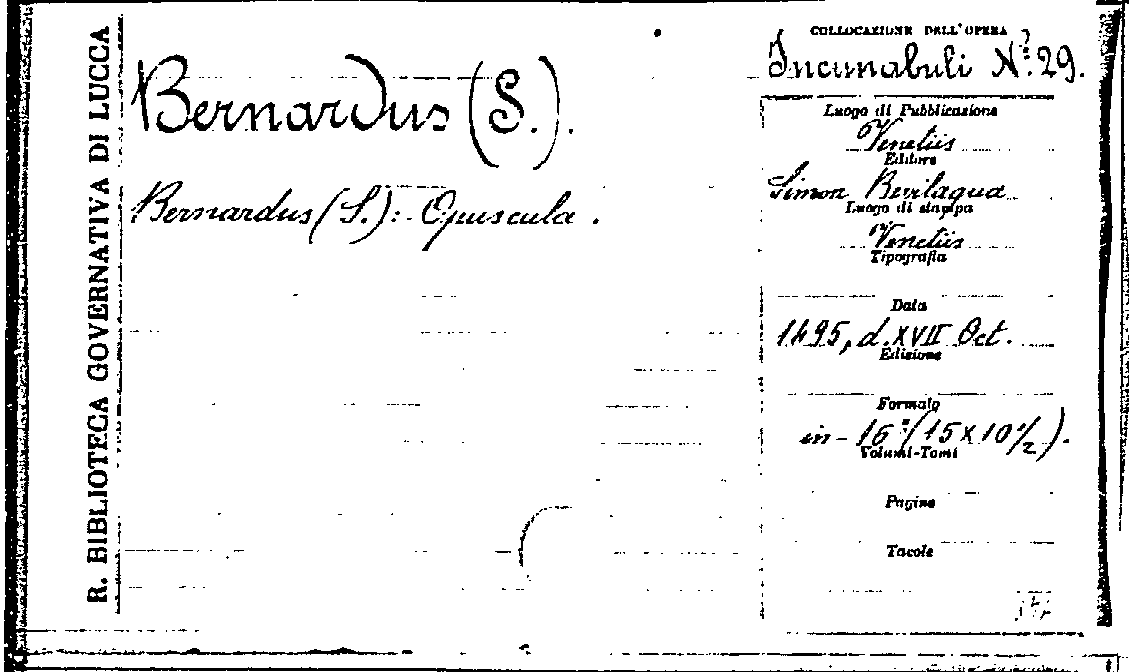 R. BIBLIOTECA GOVERNATIVA DI LUCCA
Bernardus (S.).
Bernardus (S.):- Opuscula.
COLLOCAZIONE DELL'OPERA
Incunabuli N.º 29.
Luogo di Pubblicazione
Venetiis
Editore
Simon Bevilaqua
Luogo di stampa
Venetiis
Tipografia
Data
1495, d. XVII Oct.
Edizione
Formato
in - 16º (15 x 10 1/2).
Volumi-Tomi
Pagine
Tavole